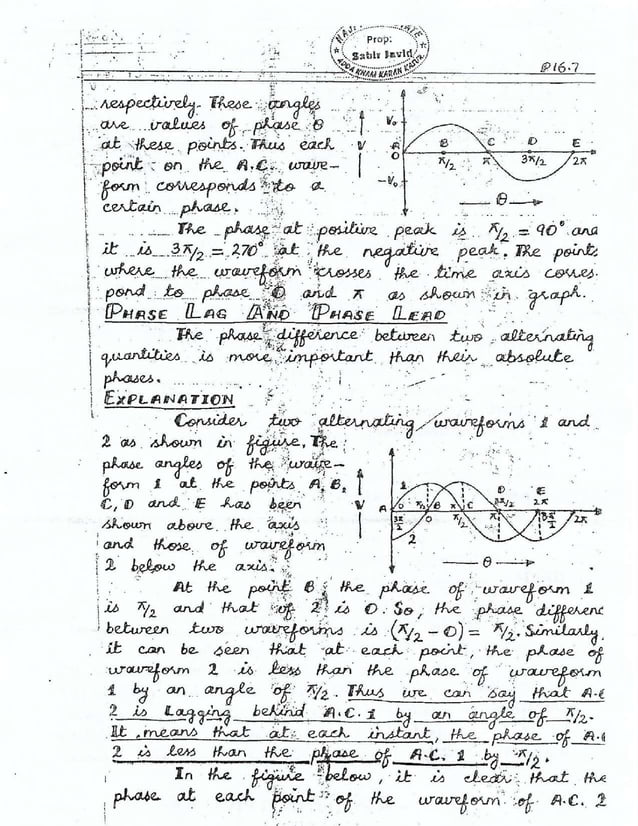 Prop:
Sabir Javid
ADDA KHAM KARAN KASUR
P16.7
respectively. These angles
are values of phase θ
at these points. Thus each
point on the A.C. wave-
form corresponds to a
certain phase.
V₀
V
A
O
B
C
D
E
π/2
π
3π/2
2π
-V₀
θ
The phase at positive peak is π/2 = 90° and
it is 3π/2 = 270° at the negative peak. The points
where the waveform crosses the time axis corres-
pond to phase 0 and π as shown in graph.
PHASE LAG AND PHASE LEAD
The phase difference between two alternating
quantities is more important than their absolute
phases.
EXPLANATION
Consider two alternating waveforms 1 and
2 as shown in figure. The
phase angles of the wave-
form 1 at the points A, B,
C, D and E has been
shown above the axis
and those of waveform
2 below the axis.
V
1
2
A
0
π/2
B
π
C
D
3π/2
E
2π
3π/2
0
π/2
π
3π/2
2π
θ
At the point B, the phase of waveform 1
is π/2 and that of 2 is 0. So, the phase differenc
between two waveforms is (π/2 - 0) = π/2. Similarly,
it can be seen that at each point, the phase of
waveform 2 is less than the phase of waveform
1 by an angle of π/2. Thus we can say that A.C
2 is Lagging behind A.C. 1 by an angle of π/2.
It means that at each instant, the phase of A.C
2 is less than the phase of A.C. 1 by π/2.
In the figure below, it is clear that the
phase at each point of the waveform of A.C. 2